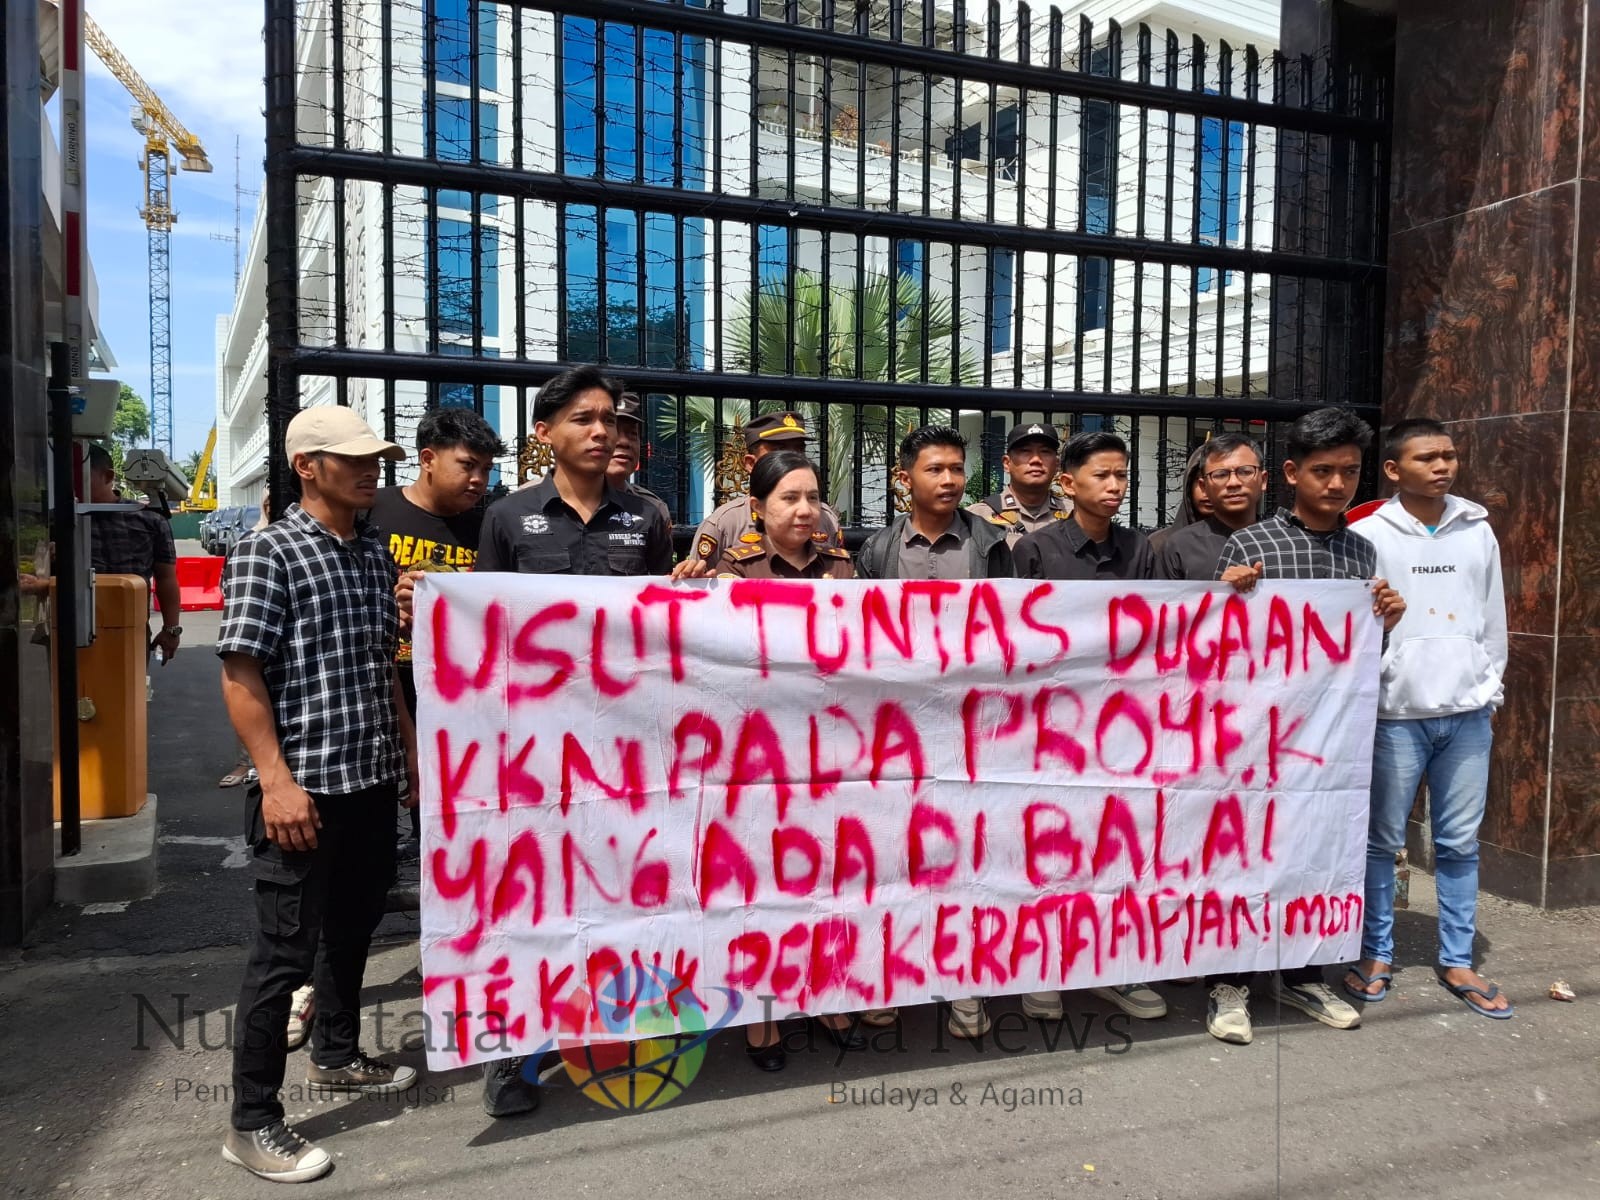 WARNING !
WARNING !
DEATHLESS
FENJACK
USUT TUNTAS DUGAAN
KKN PADA PROYEK
YANG ADA DI BALAI
TEKNIK PERKERATAAPIAN! MDN
Nusantara Jaya News
Pemersatu Bangsa Budaya & Agama